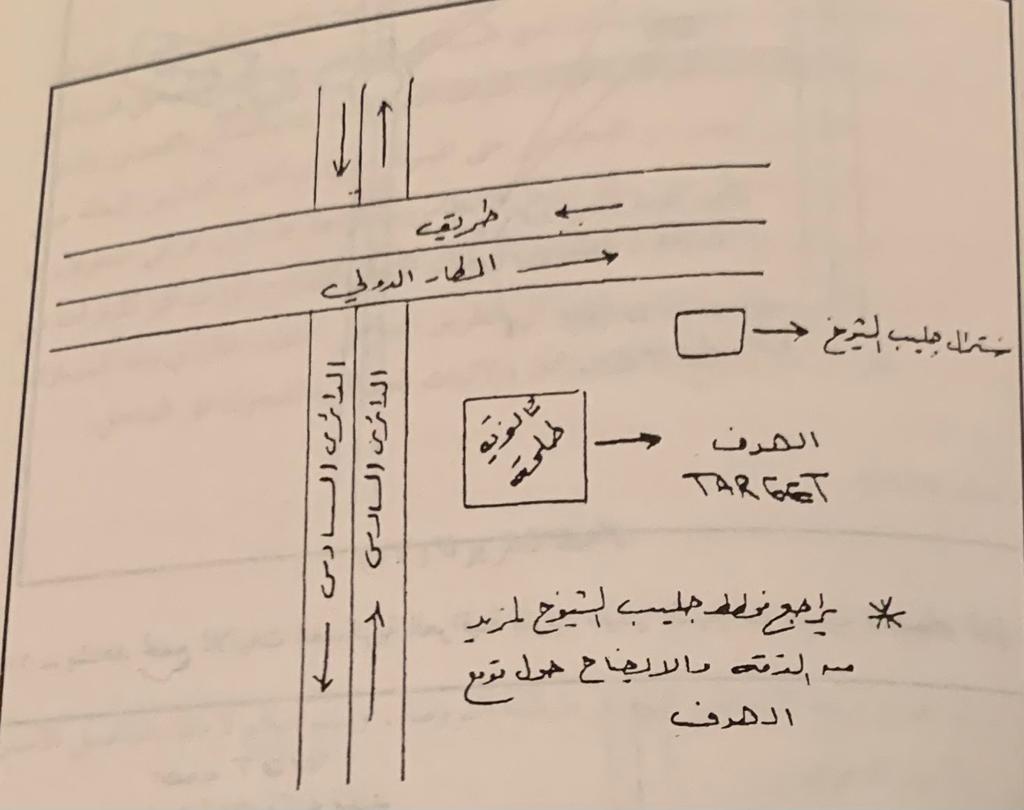 طريق
المطار الدولي
الدائري السادس
الدائري السادس
سنترال جليب الشيوخ
ثانوية
طلحة
الهدف
TARGET
* يراجع مخطط جليب الشيوخ لمزيد
من الدقة والايضاح حول موقع
الهدف